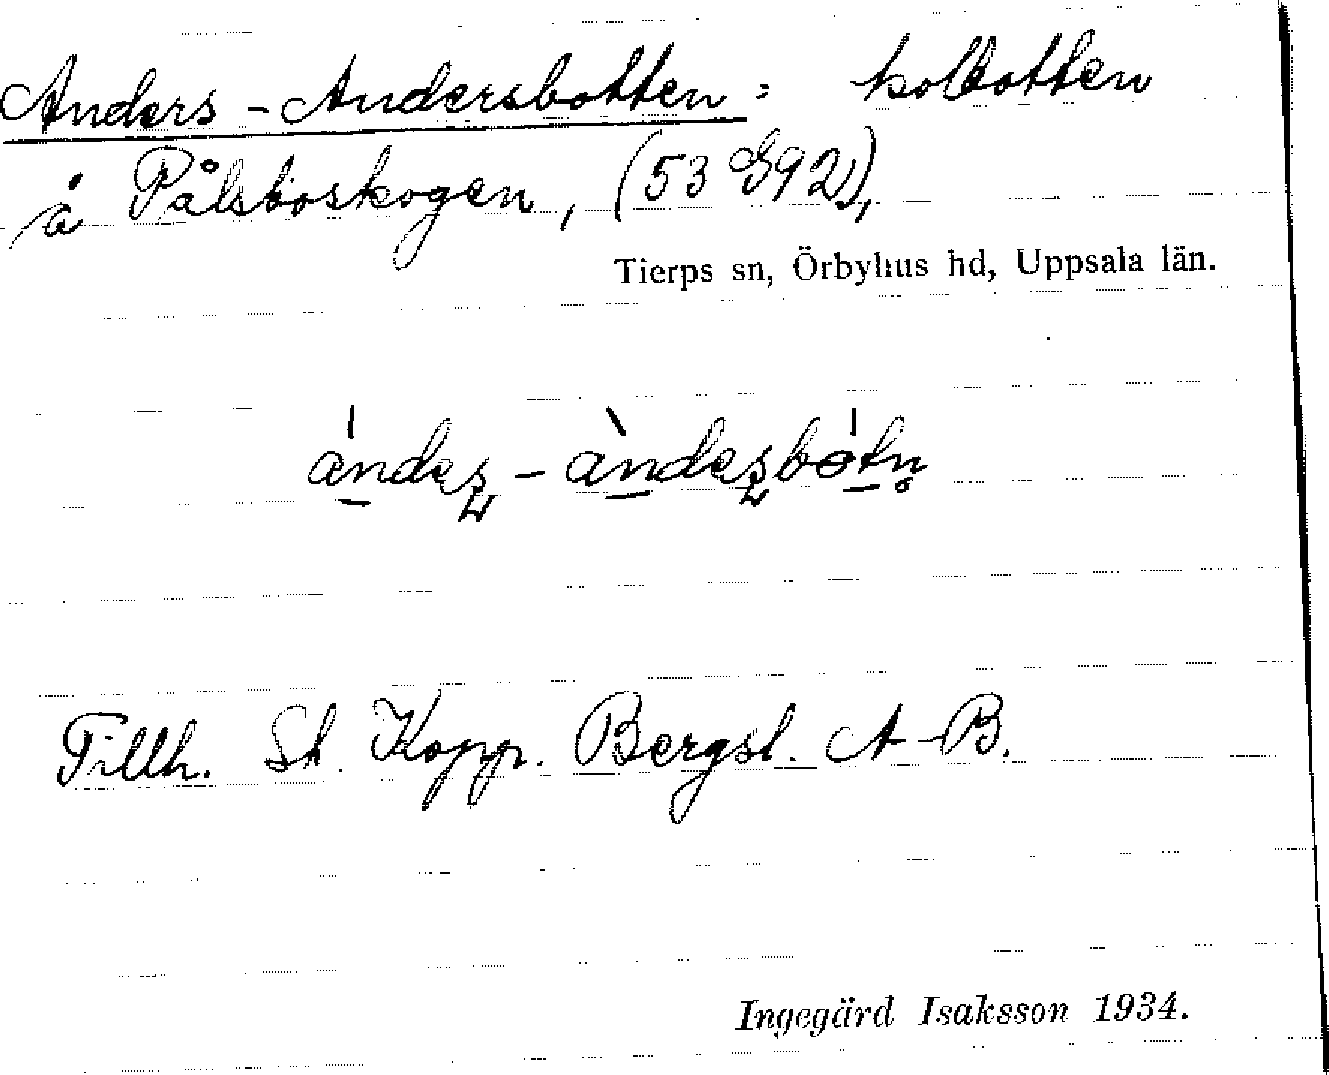 Anders-Andersbotten: kolbotten
å Pålsboskogen, (53 G92),
Tierps sn, Örbyhus hd, Uppsala län.
Tillh. St. Kopp. Bergsl. A-B.
Ingegärd Isaksson 1934.